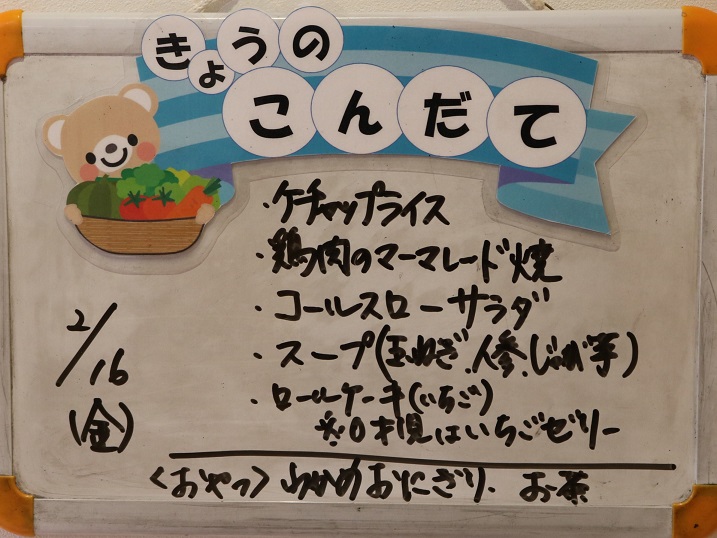 きょうの
こんだて
・ケチャップライス
・鶏肉のマーマレード焼
・コールスローサラダ
・スープ(玉ねぎ、人参、じゃが芋)
・ロールケーキ(いちご)
※0才児はいちごゼリー
2/16
(金)
<おやつ> わかめおにぎり、お茶